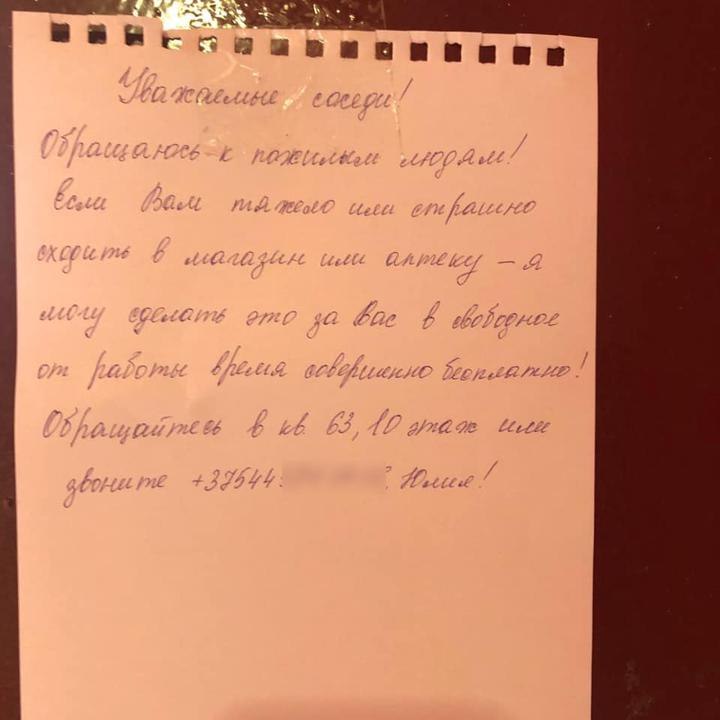 Уважаемые соседи!
Обращаюсь к пожилым людям!
Если Вам тяжело или страшно
сходить в магазин или аптеку – я
могу сделать это за Вас в свободное
от работы время совершенно бесплатно!
Обращайтесь в кв. 63, 10 этаж или
звоните +37544 Юлия!